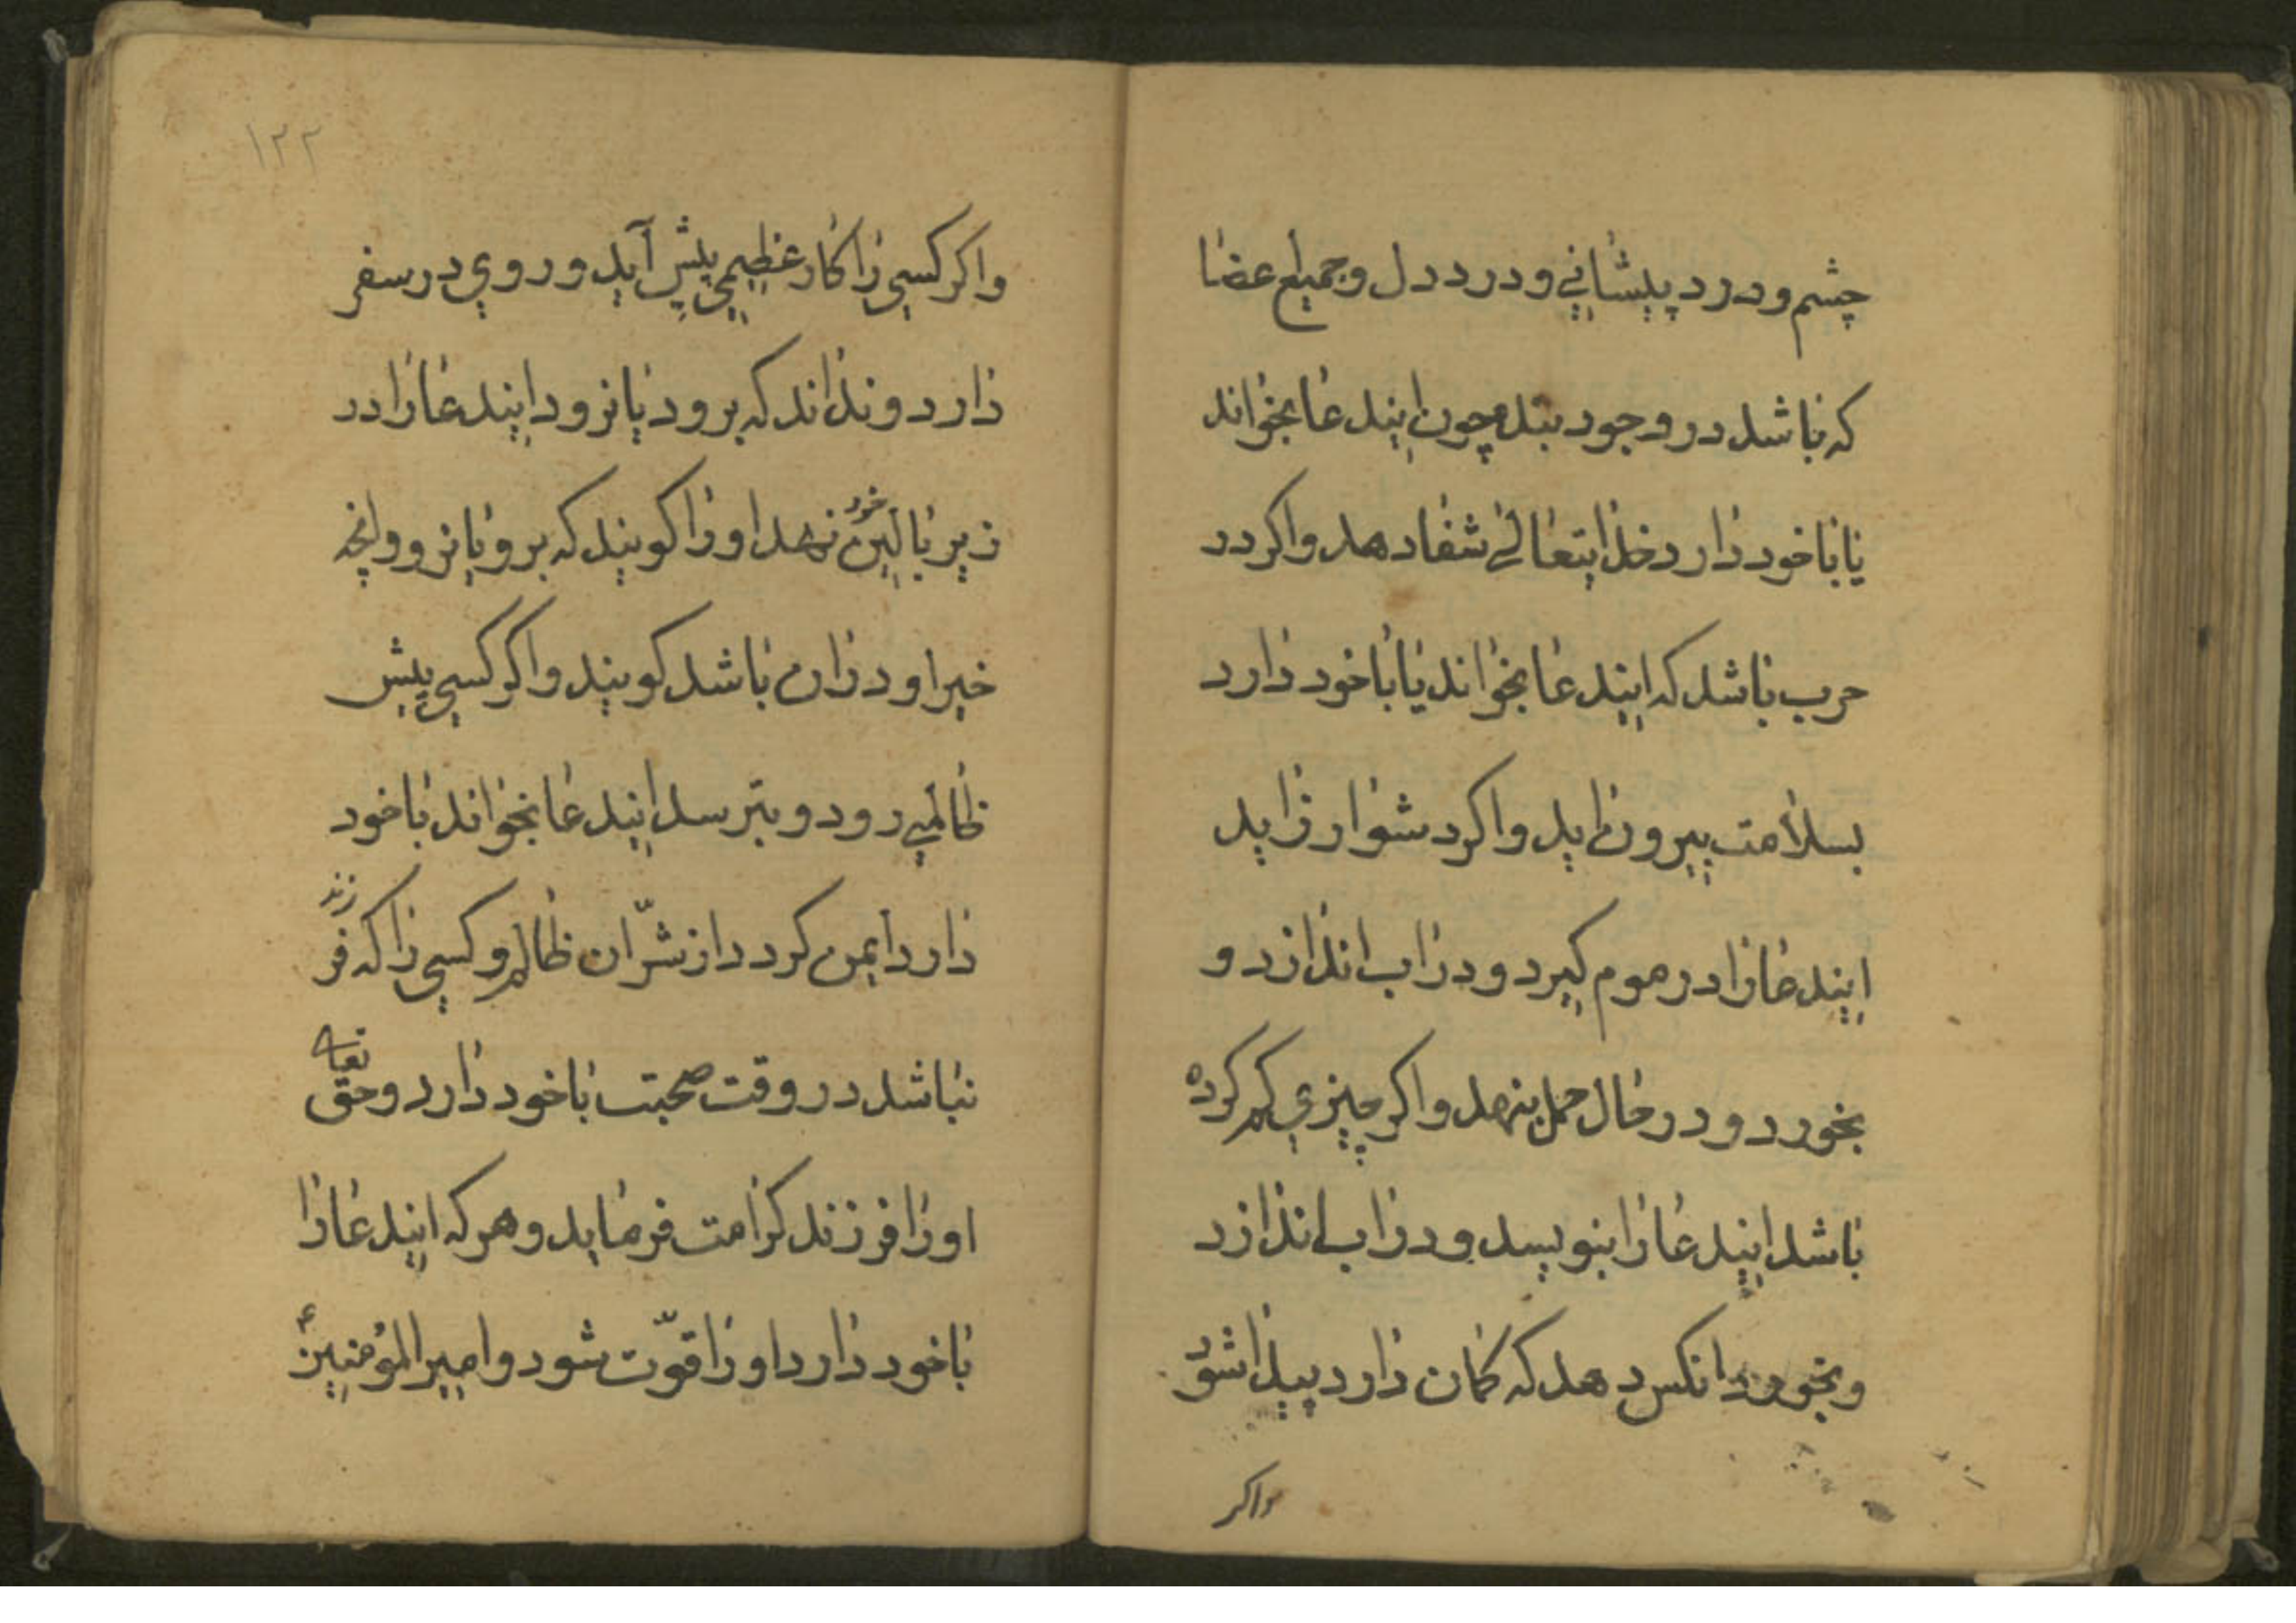 چشم و درد پیشانی و درد دل و جمیع عضا
که باشد در وجود بنده چون ایندعا بخواند
یا با خود دارد خدایتعالی شفا دهد و اکر در
حرب باشد که ایندعا بخواند یا با خود دارد
بسلامت بیرون اید و اکر دشوار زاید
ایندعا را در موم کیرد و در اب اندازد و
بخورد و در حال حمل بنهد و اکر چیزی کم کرده
باشد ایندعا را بنویسد و در اب اندازد
و بخورد انکس دهد که کمان دارد پیدا شود
واکر
۱۲۲
و اکر کسی را کار عظیمی پیش آید و روی در سفر
دارد و نداند که برود یا نرود ایندعا را در
زیر بالین خود نهد او را کویند که برو یا نرو و انچه
خیر او در ان باشد کویند و اکر کسی پیش
ظالمی رود و بترسد ایندعا بخواند با خود
دارد ایمن کردد از شرّ ان ظالم و کسی را که فرزند
نباشد در وقت صحبت با خود دارد و حق تعالی
او را فرزند کرامت فرماید و هر که ایندعا را
با خود دارد او را قوّت شود و امیر المؤمنین ع